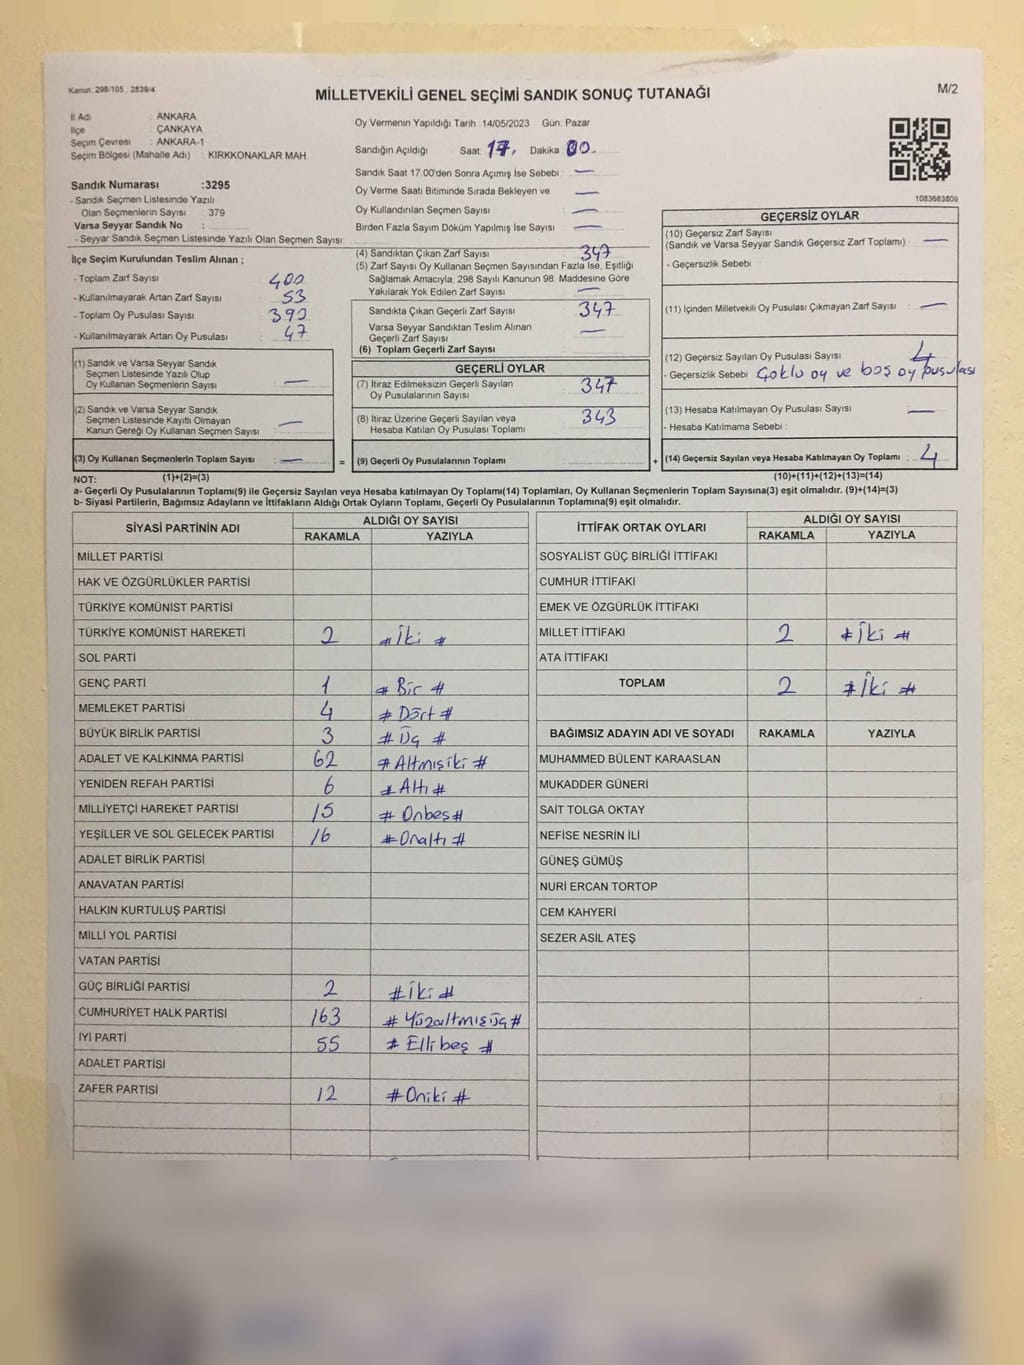 Kanun: 298/105 2839/4
MİLLETVEKİLİ GENEL SEÇİMİ SANDIK SONUÇ TUTANAĞI
M/2
İl Adı : ANKARA
İlçe : ÇANKAYA
Seçim Çevresi : ANKARA-1
Seçim Bölgesi (Mahalle Adı) : KIRKKONAKLAR MAH.
Sandık Numarası :3295
- Sandık Seçmen Listesinde Yazılı
Olan Seçmenlerin Sayısı : 379
Varsa Seyyar Sandık No :
- Seyyar Sandık Seçmen Listesinde Yazılı Olan Seçmen Sayısı:
İlçe Seçim Kurulundan Teslim Alınan ;
- Toplam Zarf Sayısı : 400
- Kullanılmayarak Artan Zarf Sayısı : 53
- Toplam Oy Pusulası Sayısı : 390
- Kullanılmayarak Artan Oy Pusulası : 47
(1) Sandık ve Varsa Seyyar Sandık
Seçmen Listesinde Yazılı Olup
Oy Kullanan Seçmenlerin Sayısı : —
(2) Sandık ve Varsa Seyyar Sandık
Seçmen Listesinde Kayıtlı Olmayan
Kanun Gereği Oy Kullanan Seçmen Sayısı : —
(3) Oy Kullanan Seçmenlerin Toplam Sayısı : —
(1)+(2)=(3)
Oy Vermenin Yapıldığı Tarih :14/05/2023 Gün: Pazar
Sandığın Açıldığı Saat 17, Dakika 00.
Sandık Saat 17.00'den Sonra Açımış İse Sebebi : —
Oy Verme Saati Bitiminde Sırada Bekleyen ve —
Oy Kullandırılan Seçmen Sayısı : —
Birden Fazla Sayım Döküm Yapılmış İse Sayısı : —
(4) Sandıktan Çıkan Zarf Sayısı : 347
(5) Zarf Sayısı Oy Kullanan Seçmen Sayısından Fazla İse, Eşitliği
Sağlamak Amacıyla, 298 Sayılı Kanunun 98. Maddesine Göre
Yakılarak Yok Edilen Zarf Sayısı : —
Sandıkta Çıkan Geçerli Zarf Sayısı : 347
Varsa Seyyar Sandıktan Teslim Alınan
Geçerli Zarf Sayısı : —
(6) Toplam Geçerli Zarf Sayısı
GEÇERLİ OYLAR
(7) İtiraz Edilmeksizin Geçerli Sayılan
Oy Pusulalarının Sayısı : 347
(8) İtiraz Üzerine Geçerli Sayılan veya
Hesaba Katılan Oy Pusulası Toplamı : 343
= (9) Geçerli Oy Pusulalarının Toplamı : +
1083683809
GEÇERSİZ OYLAR
(10) Geçersiz Zarf Sayısı
(Sandık ve Varsa Seyyar Sandık Geçersiz Zarf Toplamı) : —
- Geçersizlik Sebebi :
(11) İçinden Milletvekili Oy Pusulası Çıkmayan Zarf Sayısı : —
(12) Geçersiz Sayılan Oy Pusulası Sayısı : 4
- Geçersizlik Sebebi Çoklu oy ve boş oy pusulası
(13) Hesaba Katılmayan Oy Pusulası Sayısı : —
- Hesaba Katılmama Sebebi :
(14) Geçersiz Sayılan veya Hesaba Katılmayan Oy Toplamı : 4
(10)+(11)+(12)+(13)=(14)
NOT:
a- Geçerli Oy Pusulalarının Toplamı(9) ile Geçersiz Sayılan veya Hesaba katılmayan Oy Toplamı(14) Toplamları, Oy Kullanan Seçmenlerin Toplam Sayısına(3) eşit olmalıdır. (9)+(14)=(3)
b- Siyasi Partilerin, Bağımsız Adayların ve İttifakların Aldığı Ortak Oyların Toplamı, Geçerli Oy Pusulalarının Toplamına(9) eşit olmalıdır.
SİYASİ PARTİNİN ADI ALDIĞI OY SAYISI
RAKAMLA YAZIYLA
MİLLET PARTİSİ
HAK VE ÖZGÜRLÜKLER PARTİSİ
TÜRKİYE KOMÜNİST PARTİSİ
TÜRKİYE KOMÜNİST HAREKETİ 2 # İki #
SOL PARTİ
GENÇ PARTİ 1 # Bir #
MEMLEKET PARTİSİ 4 # Dört #
BÜYÜK BİRLİK PARTİSİ 3 # Üç #
ADALET VE KALKINMA PARTİSİ 62 # Altmışiki #
YENİDEN REFAH PARTİSİ 6 # Altı #
MİLLİYETÇİ HAREKET PARTİSİ 15 # Onbeş #
YEŞİLLER VE SOL GELECEK PARTİSİ 16 # Onaltı #
ADALET BİRLİK PARTİSİ
ANAVATAN PARTİSİ
HALKIN KURTULUŞ PARTİSİ
MİLLİ YOL PARTİSİ
VATAN PARTİSİ
GÜÇ BİRLİĞİ PARTİSİ 2 # İki #
CUMHURİYET HALK PARTİSİ 163 # Yüzaltmışüç #
İYİ PARTİ 55 # Elli beş #
ADALET PARTİSİ
ZAFER PARTİSİ 12 # Oniki #
İTTİFAK ORTAK OYLARI ALDIĞI OY SAYISI
RAKAMLA YAZIYLA
SOSYALİST GÜÇ BİRLİĞİ İTTİFAKI
CUMHUR İTTİFAKI
EMEK VE ÖZGÜRLÜK İTTİFAKI
MİLLET İTTİFAKI 2 # İki #
ATA İTTİFAKI
TOPLAM 2 # İki #
BAĞIMSIZ ADAYIN ADI VE SOYADI RAKAMLA YAZIYLA
MUHAMMED BÜLENT KARAASLAN
MUKADDER GÜNERİ
SAİT TOLGA OKTAY
NEFİSE NESRİN İLİ
GÜNEŞ GÜMÜŞ
NURİ ERCAN TORTOP
CEM KAHYERİ
SEZER ASİL ATEŞ